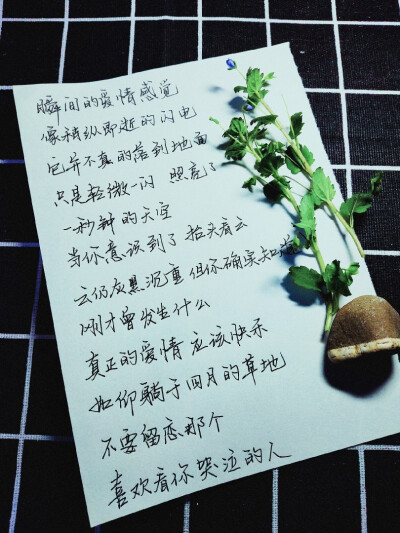 瞬间的爱情感觉
像稍纵即逝的闪电
它并不真的落到地面
只是轻微一闪 照亮了
一秒钟的天空
当你意识到了 抬头看云
云仍灰黑沉重 但你确实知道
刚才曾发生什么
真正的爱情应该快乐
如仰躺于四月的草地
不要留恋那个
喜欢看你哭泣的人